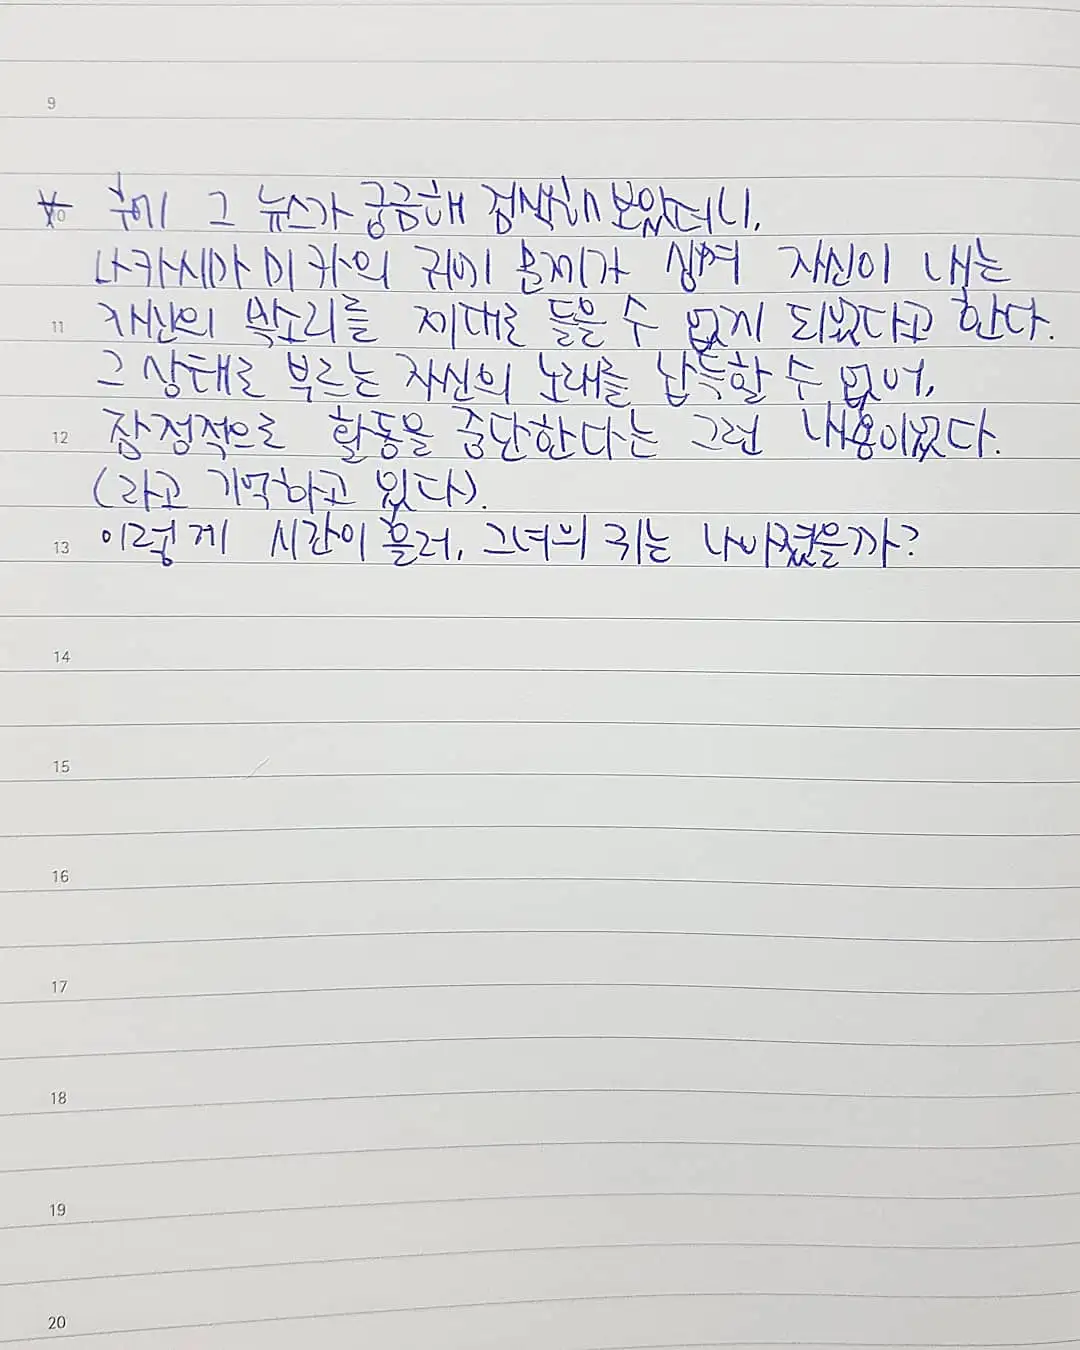 9
* 후에 그 뉴스가 궁금해 검색해 보았더니,
10
나카시마 미카의 귀에 문제가 생겨 자신이 내는
11 자신의 목소리를 제대로 들을 수 없게 되었다고 한다.
그 상태로 부르는 자신의 노래를 납득할 수 없어,
12 잠정적으로 활동을 중단한다는 그런 내용이었다.
(라고 기억하고 있다).
13 이렇게 시간이 흘러, 그녀의 귀는 나아졌을까?
14
15
16
17
18
19
20